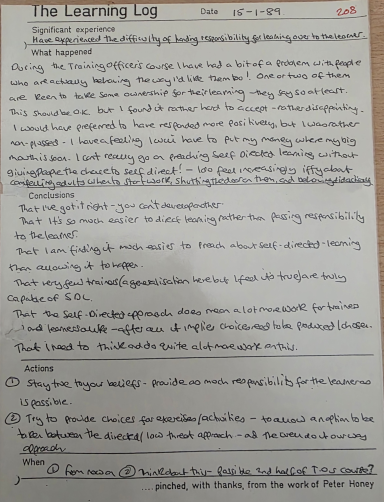 The Learning Log
Date 15-1-89. 208
Significant experience
Have experienced the difficulty of handing responsibility for learning over to the learner.
What happened
During the Training Officers Course I have had a bit of a problem with people
who are actually behaving the way I'd like them to! One or two of them
are keen to take some ownership for their learning - they say so at least.
This should be O.K. but I found it rather hard to accept - rather disappointing.
I would have preferred to have responded more positively, but I was rather
non-plussed - I have a feeling I will have to put my money where my big
mouth is soon. I can't really go on preaching Self Directed learning without
giving people the chance to self direct! - I do feel increasingly iffy about
adults when to start work, shutting the door on them, and behaving didactically
Conclusions
That I've got it right - you can't develop another
That It's so much easier to direct learning rather than passing responsibility
to the learner.
That I am finding it much easier to Preach about self-directed-learning
than allowing it to happen.
That very few trainers (a generalisation here but I feel its true) are truly
capable of SDL.
That the Self-Directed approach does mean a lot more work for trainers
and learners alike - after all it implies choices need to be produced / chosen.
That I need to think and do quite a lot more work on this.
Actions
① Stay true to your beliefs - provide as much responsibility for the learner as
is possible.
② Try to provide choices for exercises/activities - to allow an option to be
taken between the directed / low threat approach - and the own way
approach
When ① From now on ② Think about this - possible 2nd half of T.O's course?
.... pinched, with thanks, from the work of Peter Honey